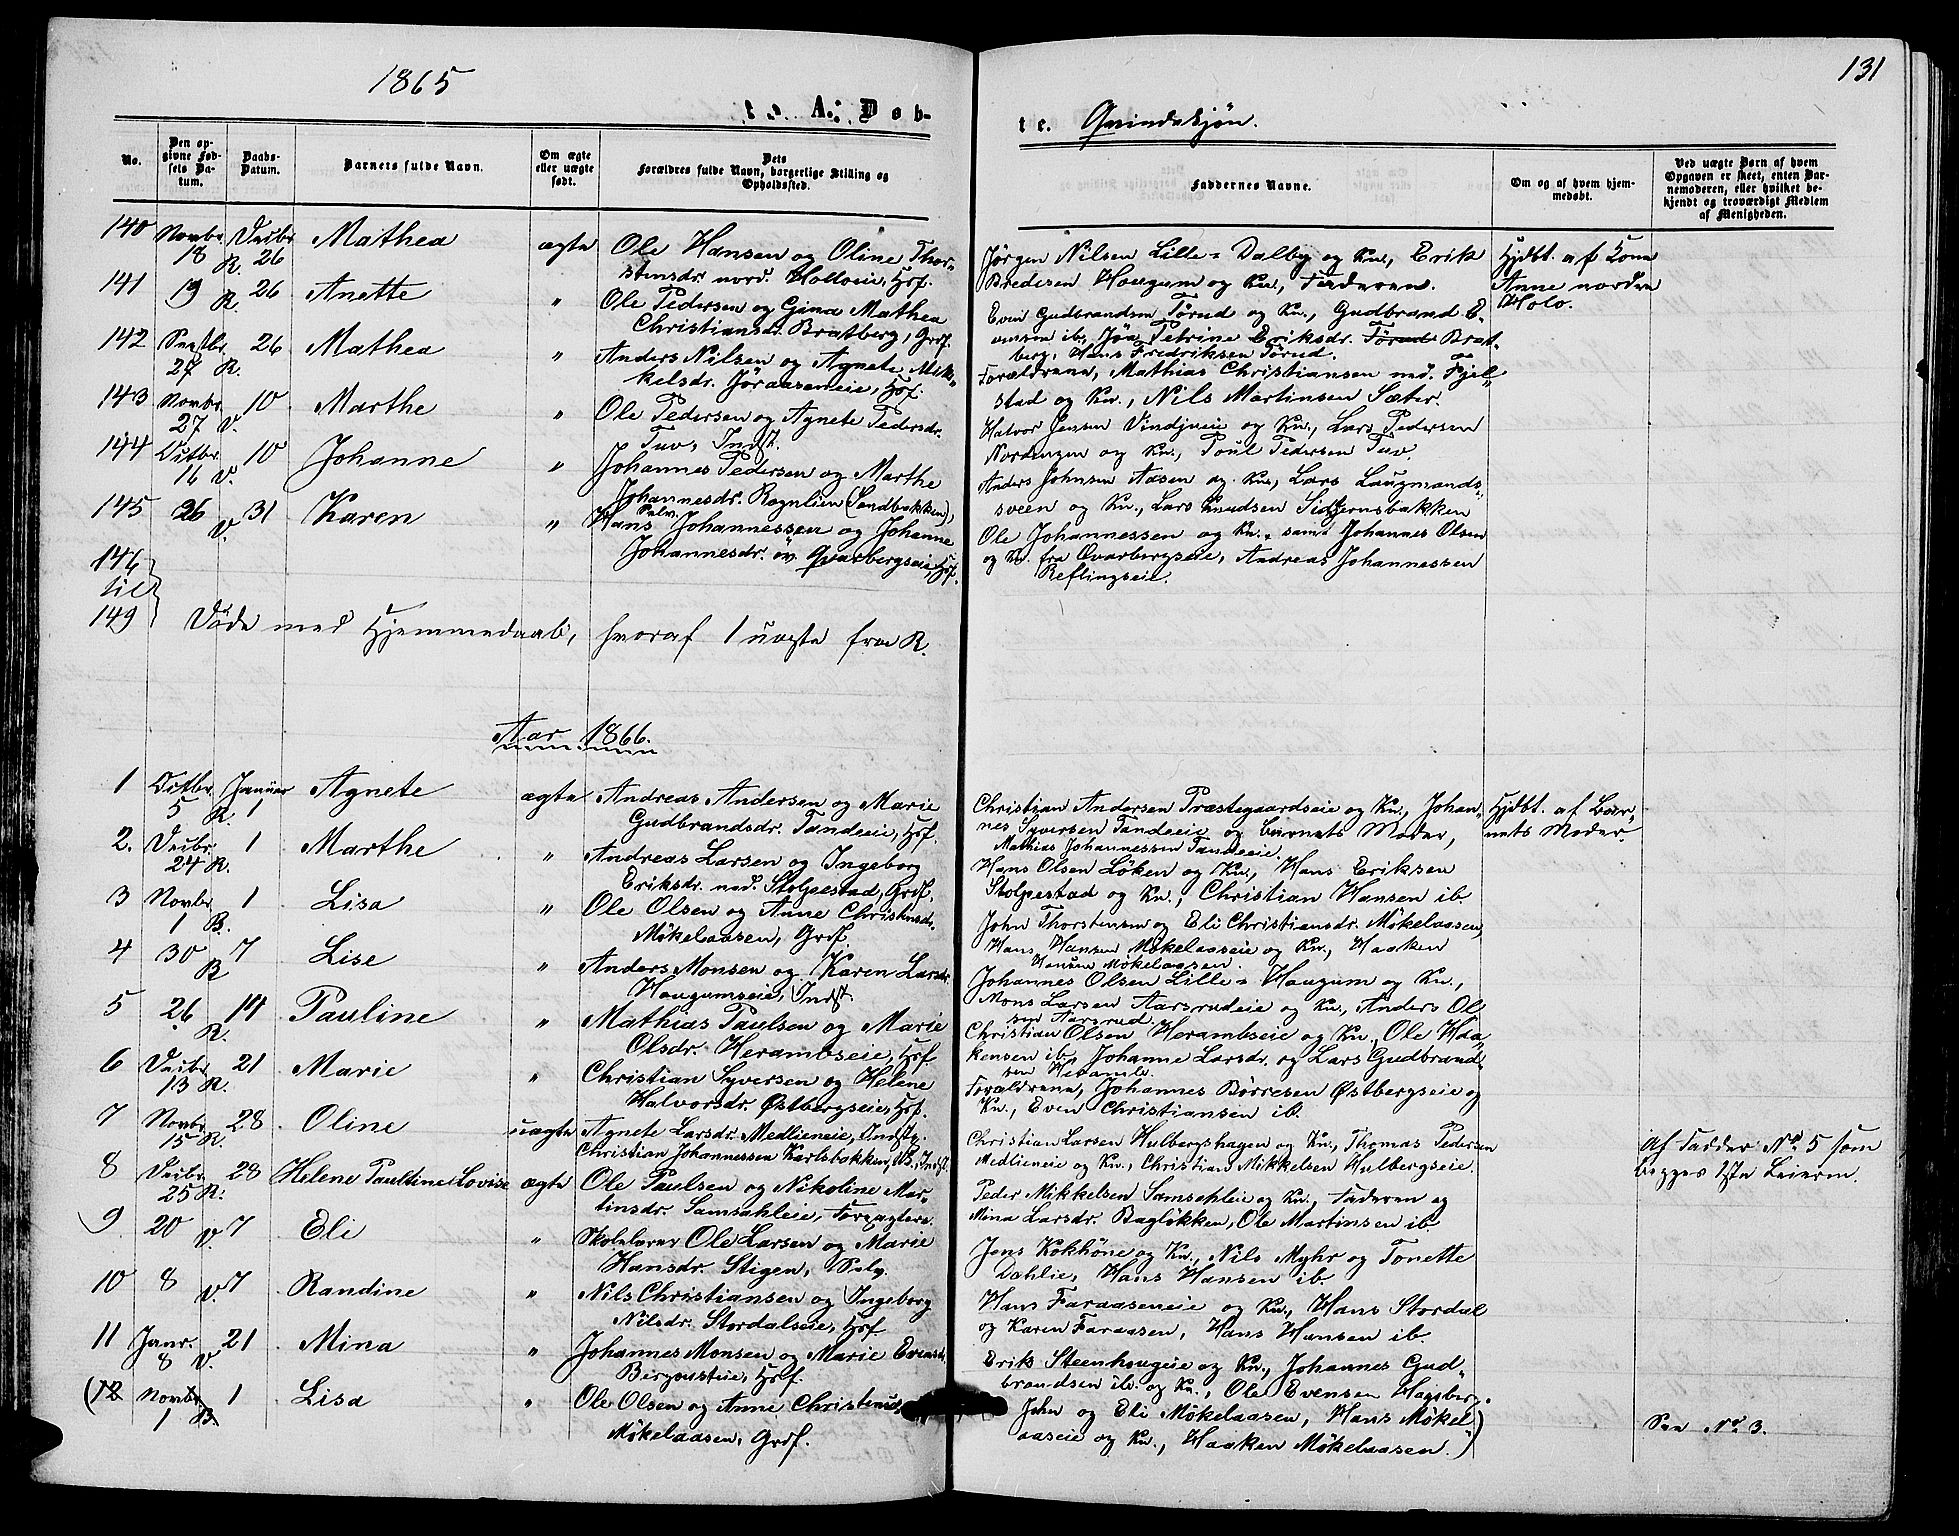 1865
131
A. Døb-
te. Qvindekjøn.
No.
Den op-
givne Fød-
sels Da-
tum.
Daabs-
Datum.
Barnets fulde Navn.
Om ægte
eller uægte
født.
Dets
Forældres fulde Navn, borgerlige Stilling og
Opholdssted.
Faddernes Navne.
Om og af hvem hjem-
medøbt.
Ved uægte Børn af hvem
Opgaven er skeet, enten Bar-
nemoderen, eller hvilket be-
kjendt og troværdigt Medlem
af Menigheden.
140 Novbr. 18 R. Decbr. 26 Mathea ægte Ole Hansen og Oline Thor-
stensdr. nord. Holloeie, Hsf.
Jørgen Nilsen Lille-Dalby og Kn., Erik
Bredesen Hougum og Kn., Faderen.
Hjdbt. af Kona
Anne nordre
Holo.
141 19 R. 26 Anette " Ole Pedersen og Gina Mathea
Christiansdr. Bratberg, Grdf.
Even Gudbrandsen Tørud og Kn., Gudbrand E-
vensen ib., Petrine Eriksdr. Tørud Brat-
berg, Hans Fredriksen Tørud.
142 27 R. 26 Mathea " Anders Nilsen og Agnete Mik-
kelsdr. Jøraaseneie, Hsf.
Forældrene, Mathias Christiansen ned. Fjel-
stad og Kn., Nils Martinsen Sæter.
143 Novbr. 27 V. 10 Marthe " Ole Pedersen og Agnete Pedersdr.
Tuv, Indst.
Halvor Jensen Vindjueie og Kn., Lars Pedersen
Nordengen og Kn., Poul Pedersen Tuv.
144 16 V. 10 Johanne " Johannes Pedersen og Marthe
Johannesdr. Rognlien (Sandbakken),
Selv.
Anders Johnsen Aasen og Kn., Lars Laugmands-
sveen og Kn., Lars Knudsen
145 26 V. 31 Karen " Hans Johannessen og Johanne
Johannesdr. øv. Qvarbergseie, Hsf.
Ole Johannessen og Kn., samt Johannes Olsen
og Kn. fra Qvarbergseie, Andreas Johannessen
Reflingseie.
146
til
149 Døde med Hjemmedaab, hvoraf 1 uægte fra R.
Aar 1866.
1 5 R. Januar 1 Agnete ægte Andreas Andersen og Marie
Gudbrandsdr. Tandeeie, Hsf.
Christian Andersen Præstegaardseie og Kn., Johan-
nes Syversen Tandeeie og Barnets Moder,
Mathias Johannessen Tandeeie.
Hjdbt. af Bar-
nets Moder.
2. Decbr. 24 R. 1 Marthe " Andreas Larsen og Ingeborg
Eriksdr. ned. Stolpestad, Grdf.
Hans Olsen Løken og Kn., Hans Eriksen
Stolpestad og Kn., Christian Hansen ib.
3 Novbr. 1 B. 1 Lisa " Ole Olsen og Anne Christensd.
Møkelaasen, Grdf.
John Thorstensen og Eli Christiansdr. Møkelaasen,
Hans Hansen Møkelaaseie og Kn., Haaken
Hansen Møkelaasen.
4 30 R 7 Lise " Anders Monsen og Karen Larsdr.
Hougumseie, Indst.
Johannes Olsen Lille-Hougum og Kn.,
Mons Larsen Aarsrudeie og Kn., Anders Ol-
sen Aarsrud.
5 26 R. 14 Pauline " Mathias Paulsen og Marie
Olsdr. Herambseie, Hsf.
Christian Olsen Herambseie og Kn., Ole Haa-
kensen ib., Johanne Larsdr. og Lars Gudbrand-
sen Heramb.
6 Decbr. 13 R. 21 Marie " Christian Syversen og Helene
Halvorsdr. Østbergseie, Hsf.
Forældrene, Johannes Børresen Østbergseie og
Kn., Even Christiansen ib.
7 Novbr. 15 R. 28 Oline uægte Agnete Larsdr. Medlieneie, Indst.
Christian Johannessen Karlsbakken, Indst.
Christian Larsen Hulbergshagen og Kn., Thomas Pedersen
Medlieneie og Kn., Christian Mikkelsen Hulbergseie.
Af Fadder No. 5 som
begges 1ste Leierm.
8 Decbr. 25 R. 28 Helene Paulline Lovise ægte Ole Paulsen og Nikoline Mar-
tinsdr. Samsahleie, Forpagtere.
Peder Mikkelsen Samsahleie og Kn., Faderen og
Mina Larsdr. Bagløkken, Ole Martinsen ib.
9 20 V. 7 Eli " Skolelærer Ole Larsen og Marie
Hansdr. Stigen, Selv.
Jens Kokhöne og Kn., Nils Myhr og Tonette
Dahlie, Hans Hansen ib.
10 8 V. 7 Randine " Nils Christiansen og Ingeborg
Nilsdr. Stordalseie, Hsf.
Hans Faraaseneie og Kn., Hans Stordal
og Karen Faraasen, Hans Hansen ib.
11 Janr. 8 V. 21 Mina " Johannes Monsen og Marie Evensdr.
Hsf.
Erik Steenhougeie og Kn., Johannes Gud-
brandsen ib. og Kn., Ole Evensen Hagsberg.
(12 Novbr. 1 B. 1 Lisa " Ole Olsen og Anne Christensd.
Møkelaasen, Grdf.
John og Eli Møkelaasen, Hans Møkel-
aaseie og Kn., Haaken Møkelaasen.)
See No. 3.